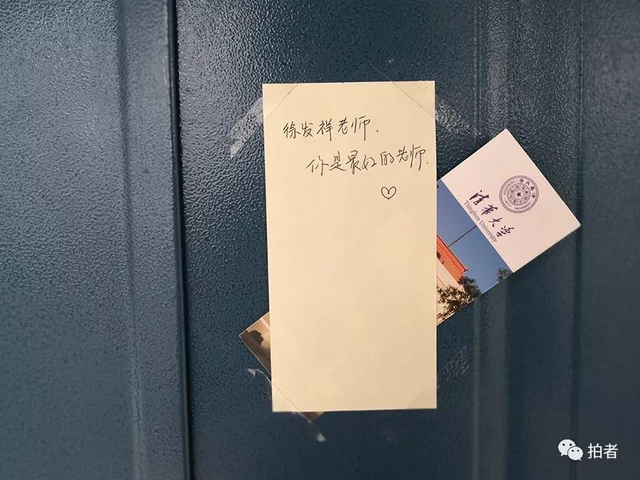 徐发祥老师.
你是最好的老师.
♡
清华大学
Tsinghua University
拍者